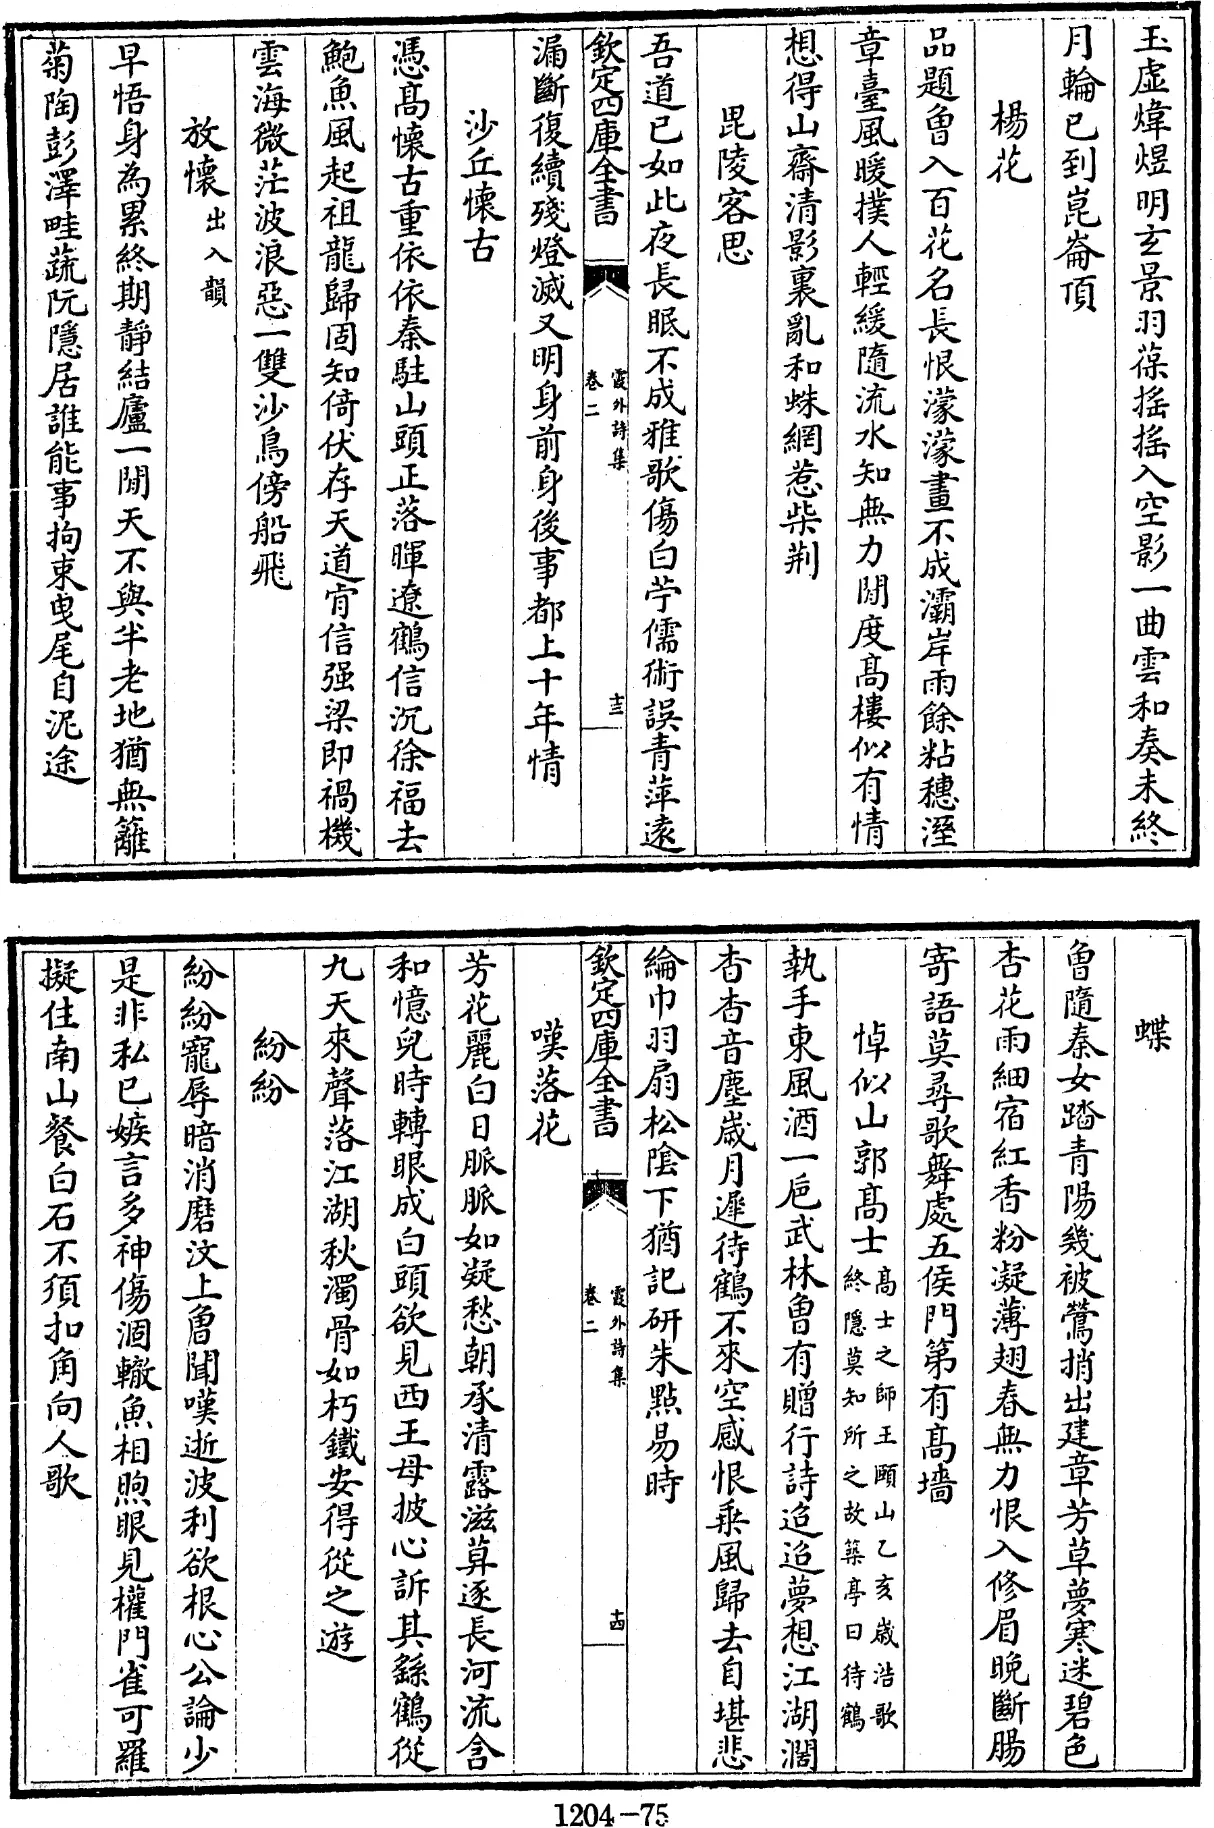 玉虛煒煜明玄景羽葆揺揺入空影一曲雲和奏未終
月輪已到崑崙頂
楊花
品題曾入百花名長恨濛濛畫不成灞岸雨餘粘穗溼
章臺風暖撲人輕緩隨流水知無力閒度髙樓似有情
想得山齋清影裏亂和蛛網惹柴荆
毘陵客思
吾道已如此夜長眠不成雅歌傷白苧儒術誤青萍遠
欽定四庫全書
霞外詩集
卷二
十三
漏斷復續殘燈滅又明身前身後事都上十年情
沙丘懷古
憑髙懷古重依依秦駐山頭正落暉遼鶴信沉徐福去
鮑魚風起祖龍歸固知倚伏存天道肯信强梁即禍機
雲海微茫波浪惡一雙沙鳥傍船飛
放懷出入韻
早悟身為累終期靜結廬一閒天不與半老地猶無籬
菊陶彭澤畦蔬阮隱居誰能事拘束曳尾自泥途
蝶
曾隨秦女踏青陽幾被鶯捎出建章芳草夢寒迷碧色
杏花雨細宿紅香粉凝薄翅春無力恨入修眉晚斷腸
寄語莫尋歌舞處五侯門第有髙墻
悼似山郭髙士髙士之師王頤山乙亥歲浩歌
終隱莫知所之故築亭曰待鶴
執手東風酒一巵武林曾有贈行詩迢迢夢想江湖濶
杳杳音塵歲月遲待鶴不來空感恨乗風歸去自堪悲
綸巾羽扇松陰下猶記研朱㸃易時
欽定四庫全書
霞外詩集
卷二
十四
嘆落花
芳花麗白日脈脈如凝愁朝承清露滋莫逐長河流含
和憶兒時轉眼成白頭欲見西王母披心訴其繇鶴從
九天來聲落江湖秋濁骨如朽鐵安得從之遊
紛紛
紛紛寵辱暗消磨汶上曾聞嘆逝波利欲根心公論少
是非私已嫉言多神傷涸轍魚相喣眼見權門雀可羅
擬住南山餐白石不須扣角向人歌
1204-75